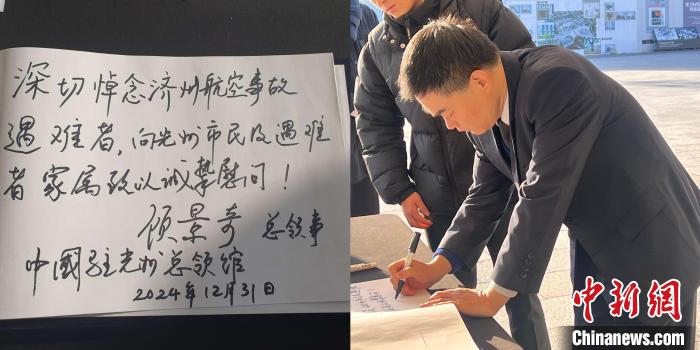 深切悼念济州航空事故
遇难者，向光州市民及遇难
者家属致以诚挚慰问！
顾景奇 总领事
中國驻光州总领馆
2024年12月31日
中新网
Chinanews.com